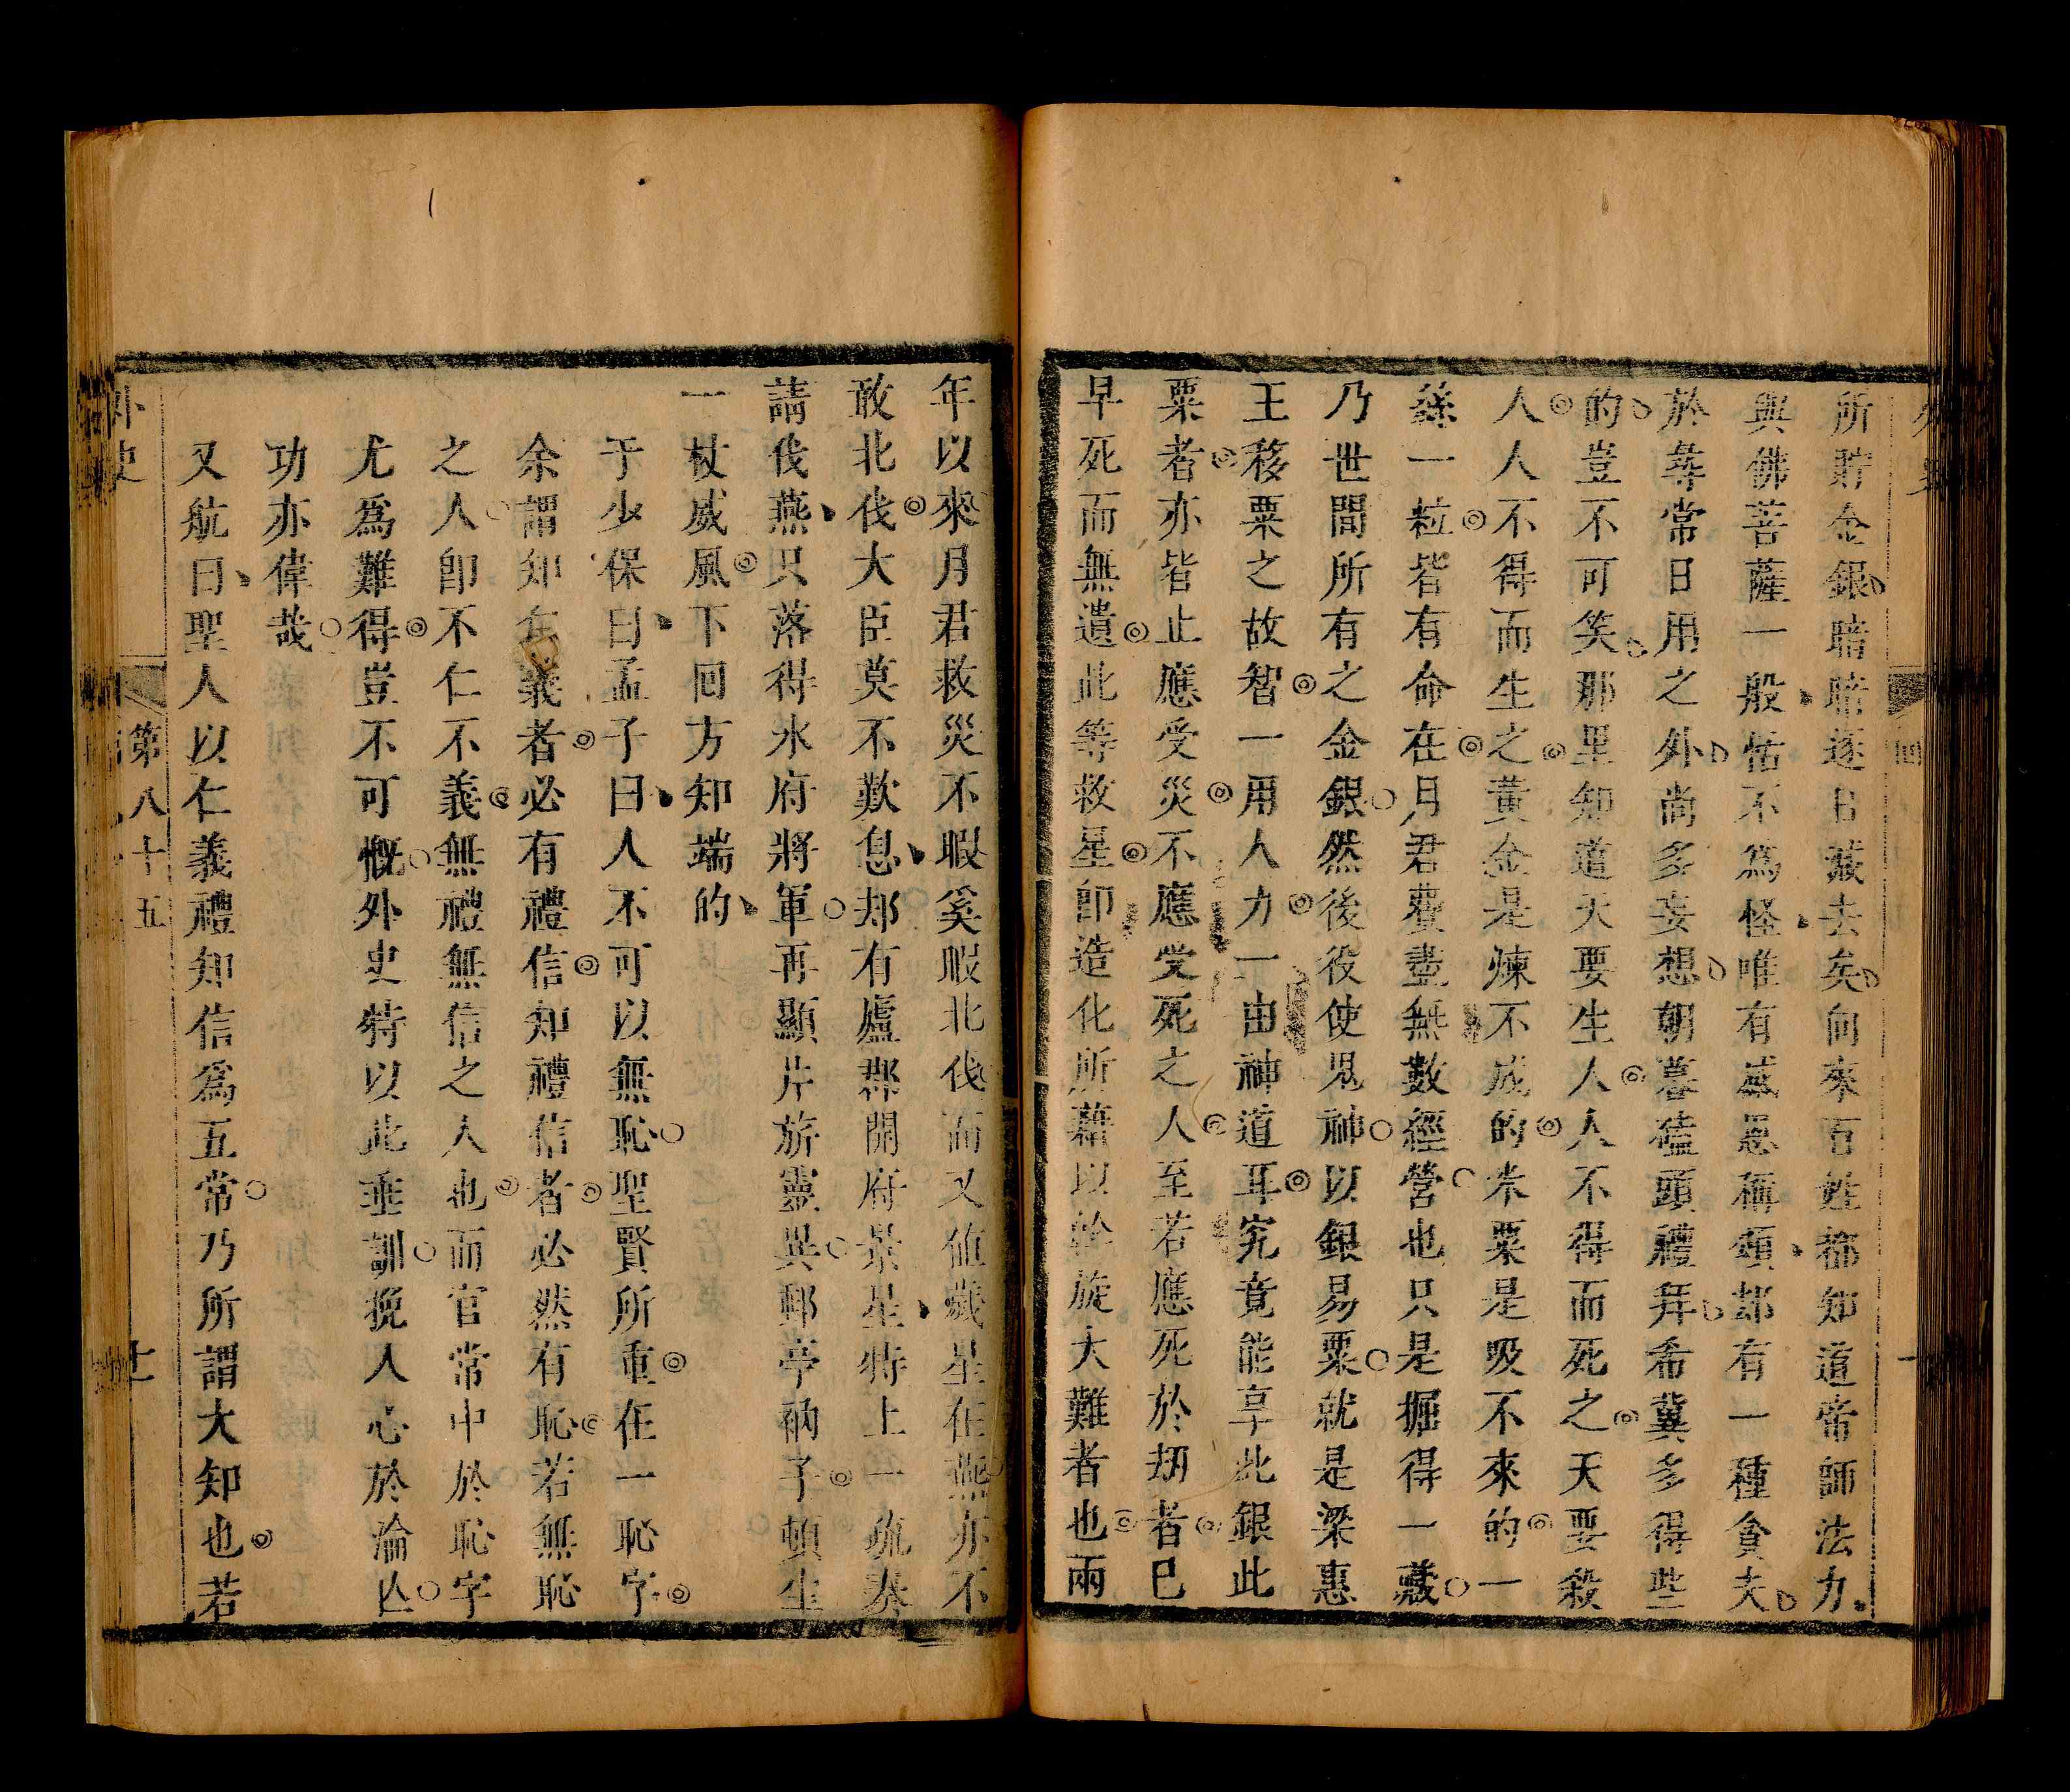 所貯金銀暗暗逐日減去矣向來百姓都知道帝師法力
與佛菩薩一般恬不為怪唯有感恩稱頌却有一種貪夫
於尋常日用之外尚多妄想朝暮磕頭禮拜希冀多得些
的豈不可笑那里知道天要生人人不得而死之天要殺
人人不得而生之黃金是煉不成的米粟是吸不來的一
絲一粒皆有命在月君費盡無數經營也只是掘得一藏
乃世間所有之金銀然後役使鬼神以銀易粟就是梁惠
王移粟之故智一用人力一由神道耳究竟能享此銀此
粟者亦皆止應受災不應受死之人至若應死於劫者已
早死而無遺此等救星即造化所藉以斡旋大難者也兩
年以來月君救災不暇奚暇北伐而又值歲星在燕亦不
敢北伐大臣莫不歎息却有廬郡開府景星特上一疏奏
請伐燕只落得氷府將軍再顯片旂靈異郵亭衲子頓生
一杖威風下回方知端的
于少保曰孟子曰人不可以無恥聖賢所重在一恥字
余謂知仁義者必有禮信知禮信者必然有恥若無恥
之人即不仁不義無禮無信之人也而官常中於恥字
尤為難得豈不可慨外史特以此垂訓挽人心於淪亾
功亦偉哉
又航曰聖人以仁義禮知信為五常乃所謂大知也若
外史
第八十五